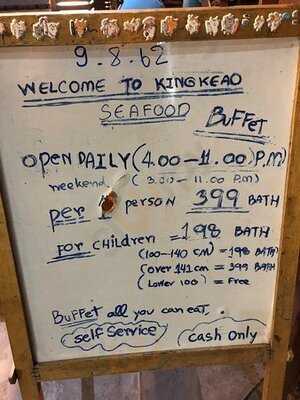 9.8.62
WELCOME TO KINGKEAO
SEAFOOD
BUFFET
OPEN DAILY (4.00-11.00) P.M
weekend (3.00-11.00 P.M)
per 1 person 399 BATH
FOR CHILDREN = 198 BATH
(100-140 cm) = 198 BATH
(over 141 cm = 399 BATH
(Lower 100) = Free
BUFFET all you can eat,
self service
cash only